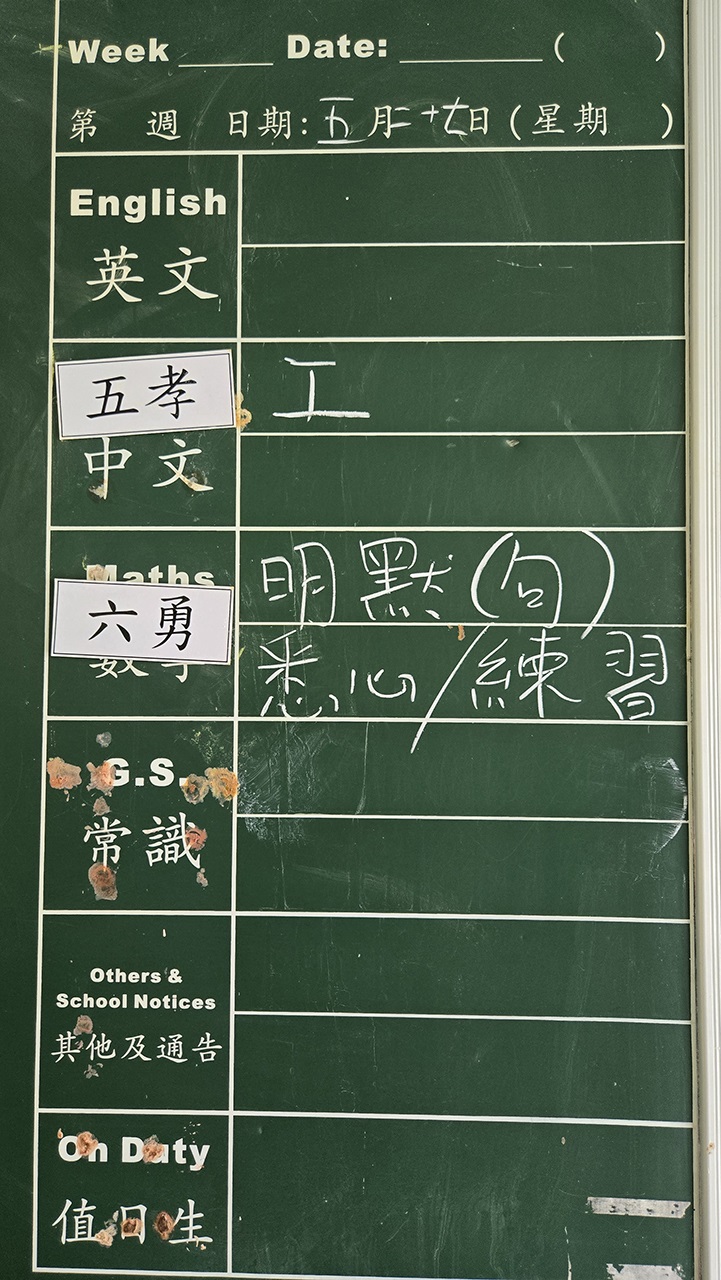 Week ______ Date: __________ ( )
第 週 日期: 五月二十七日 (星期 )
English
英文
五孝 工
中文
Maths 明默(句)
六勇
數學 悉心/練習
G.S.
常識
Others &
School Notices
其他及通告
On Duty
值日生